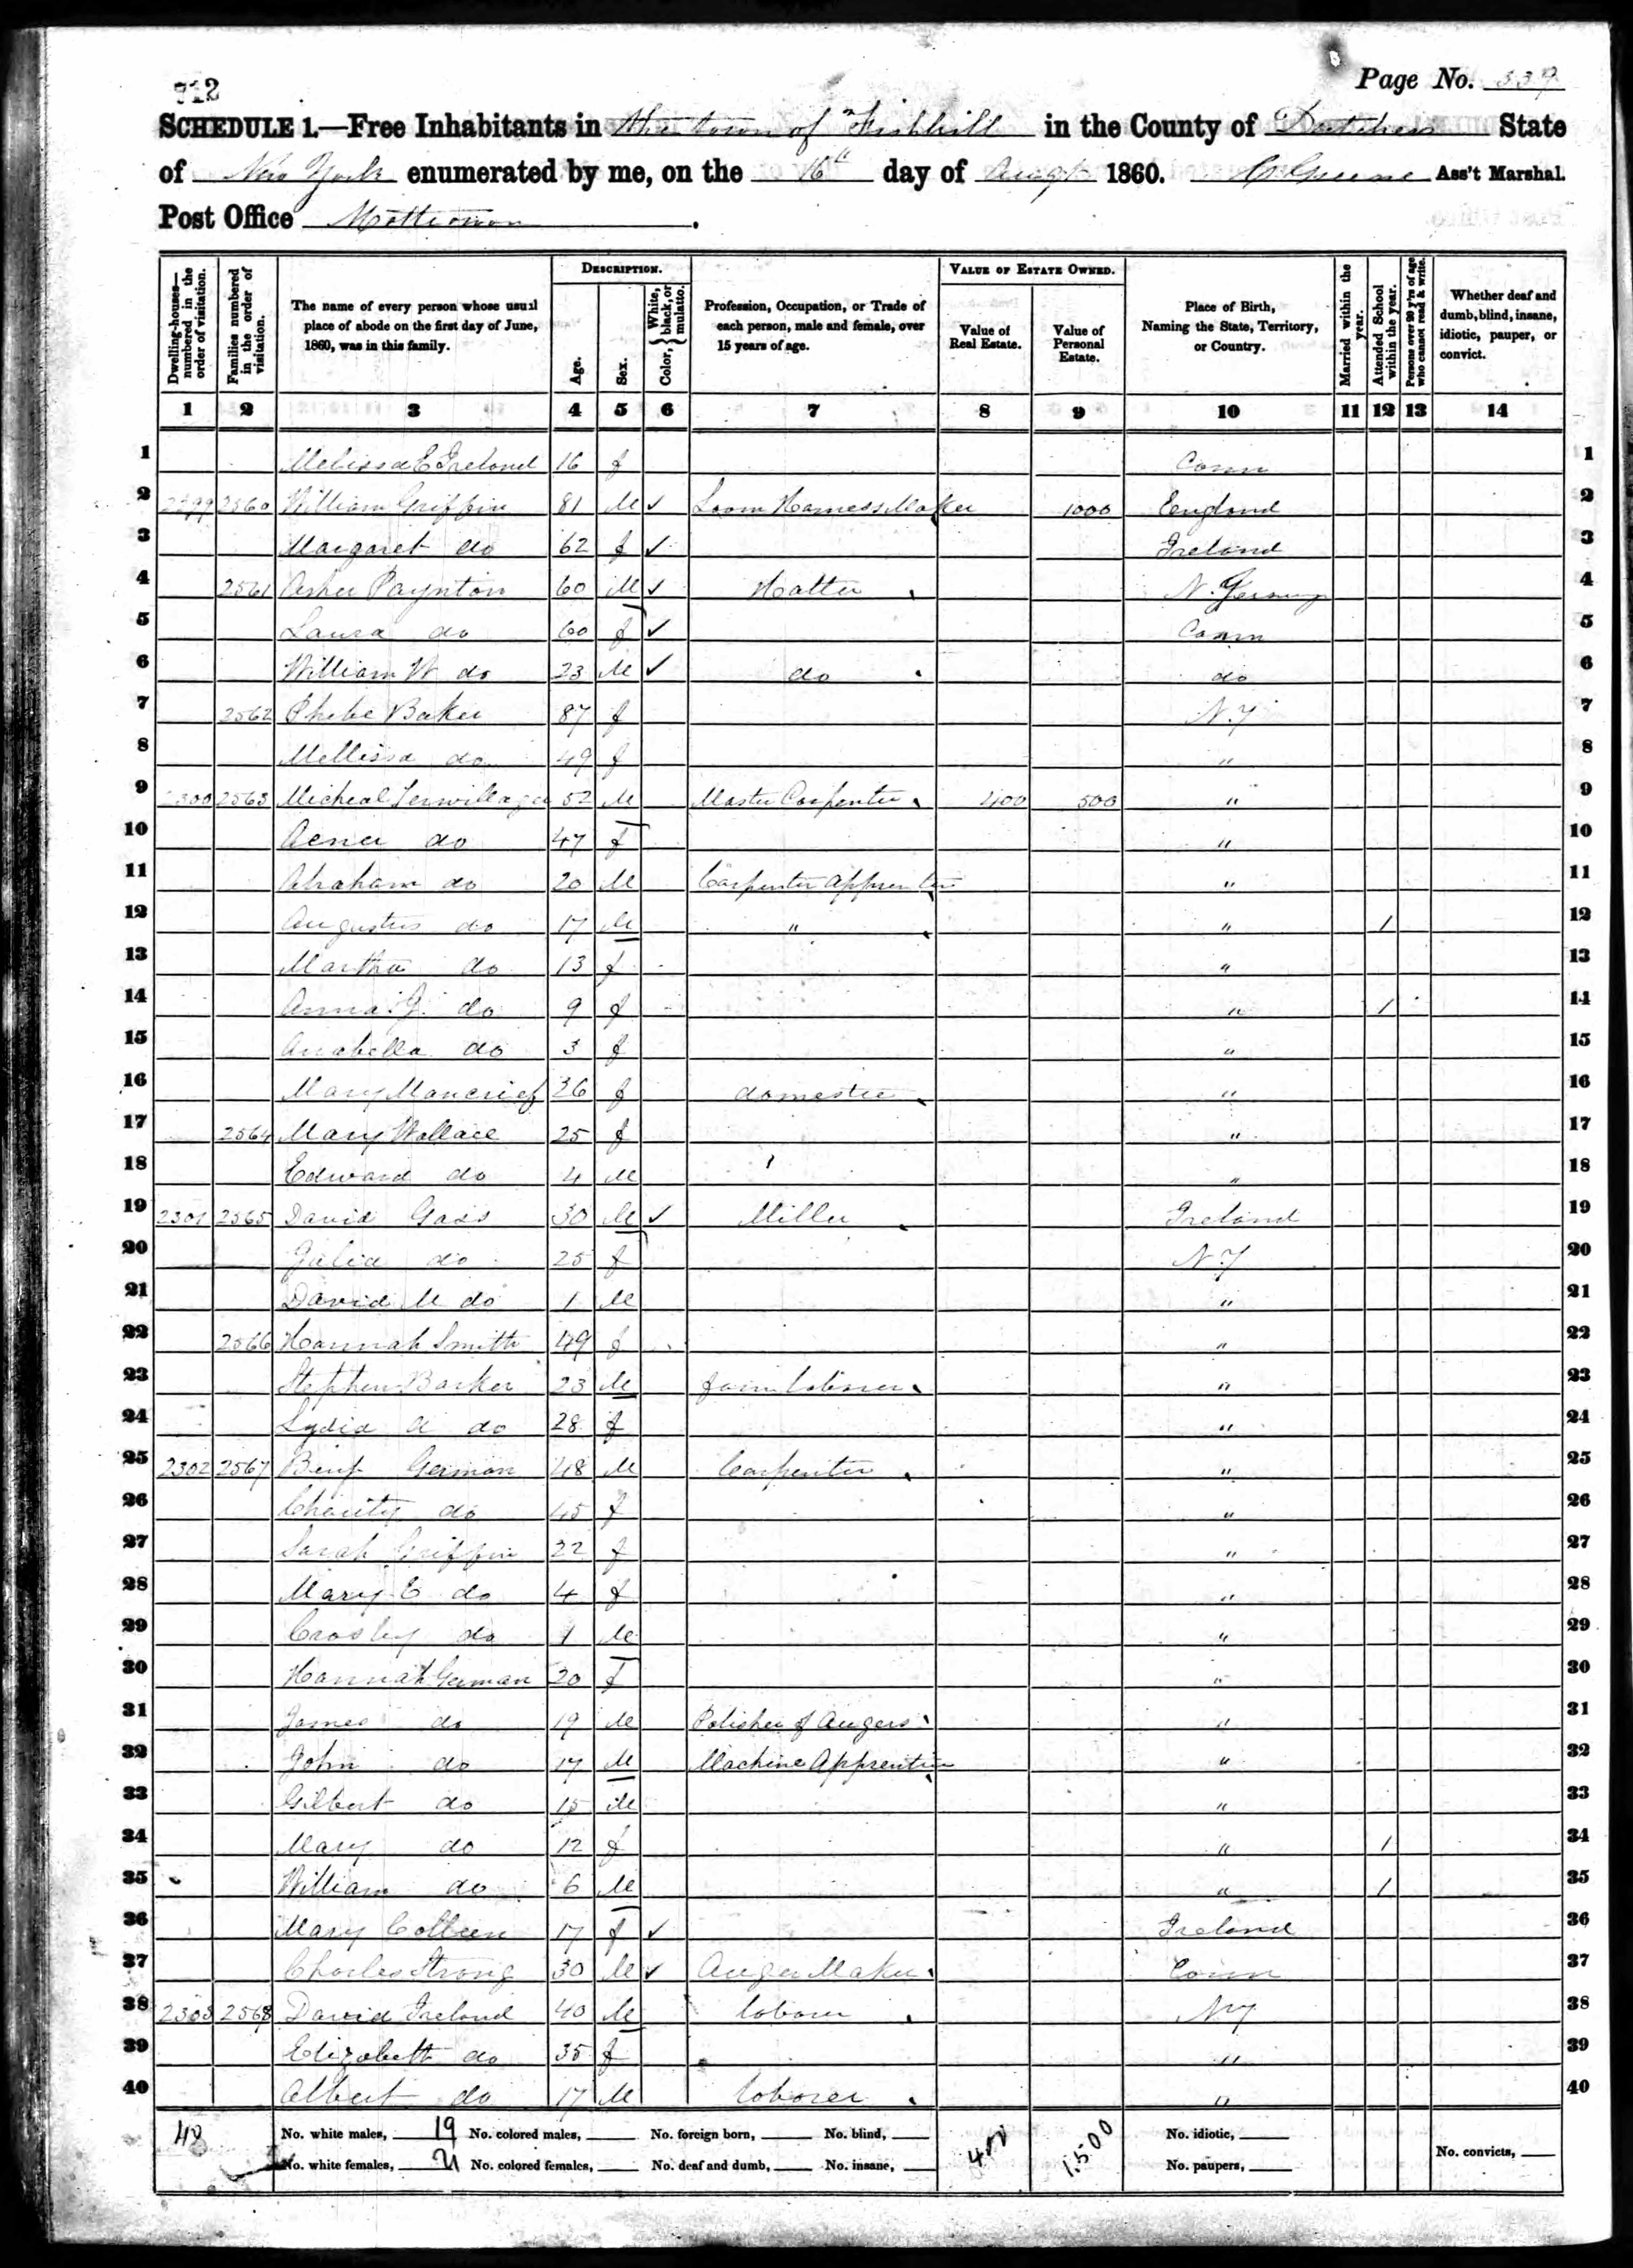 712
Page No. 539
SCHEDULE 1.—Free Inhabitants in the town of Fishkill in the County of Dutchess State
of New York enumerated by me, on the 16" day of Augt 1860. Ass't Marshal.
Post Office Matteawan.
Dwelling-houses—numbered in the order of visitation.
Families numbered in the order of visitation.
The name of every person whose usual place of abode on the first day of June, 1860, was in this family.
DESCRIPTION.
Age.
Sex.
Color, { White, black, or mulatto.
Profession, Occupation, or Trade of each person, male and female, over 15 years of age.
VALUE OF ESTATE OWNED.
Value of Real Estate.
Value of Personal Estate.
Place of Birth, Naming the State, Territory, or Country.
Married within the year.
Attended School within the year.
Persons over 20 y'rs of age who cannot read & write.
Whether deaf and dumb, blind, insane, idiotic, pauper, or convict.
1 2 3 4 5 6 7 8 9 10 11 12 13 14
1 Melissa E Ireland 16 f Conn 1
2 2299 2560 William Griffin 81 M ✓ Loom Harness Maker 1000 England 2
3 Margaret do 62 f ✓ Ireland 3
4 2561 Asher Paynton 60 M ✓ Hatter N. Jersey 4
5 Laura do 60 f ✓ Conn 5
6 William W do 23 M ✓ do do 6
7 2562 Phebe Baker 87 f N.Y 7
8 Mellissa do 49 f " 8
9 2300 2563 Micheal Terwillager 52 M Master Carpenter 400 500 " 9
10 do 47 f " 10
11 Abraham do 20 M Carpenter Apprentice " 11
12 Augustus do 17 M " " 1 12
13 Martha do 13 f " 13
14 Anna J. do 9 f " 1 14
15 Anabella do 3 f " 15
16 Mary Mancrief 36 f domestic " 16
17 2564 Mary Wallace 25 f " 17
18 Edward do 4 M " 18
19 2301 2565 David Gass 30 M ✓ Miller Ireland 19
20 Julia do 25 f N.Y 20
21 David M do 1 M " 21
22 2566 Hannah Smith 49 f " 22
23 Stephen Barker 23 M farm laborer " 23
24 Lydia A do 28 f " 24
25 2302 2567 Benj German 48 M Carpenter " 25
26 Charity do 45 f " 26
27 Sarah Griffin 22 f " 27
28 Mary E do 4 f " 28
29 Crosby do 1 M " 29
30 Hannah German 20 f " 30
31 James do 19 M Polisher of Augers " 31
32 John do 17 M Machine Apprentice " 32
33 Gilbert do 15 M " 33
34 Mary do 12 f " 1 34
35 William do 6 M " 1 35
36 Mary Colleen 17 f ✓ Ireland 36
37 Charles Strong 30 M ✓ Auger Maker Conn 37
38 2303 2568 David Ireland 40 M laborer NY 38
39 Elizabeth do 35 f " 39
40 Albert do 17 M laborer " 40
40 No. white males, 19 No. colored males, No. foreign born, No. blind, 400 1500 No. idiotic,
No. white females, 21 No. colored females, No. deaf and dumb, No. insane, No. paupers, No. convicts,